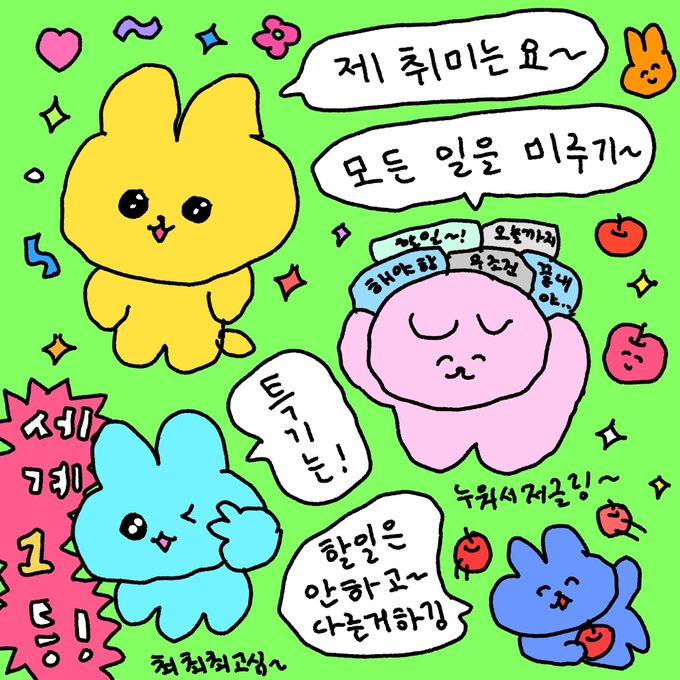 제 취미는요~
모든 일을 미루기~
할일~!
오늘까지
해야함
무조건
끝내
야...
특
기
는!
누워서 저글링~
세
계
1
등!
할일은
안하고~
다른거하김
최최최고심~